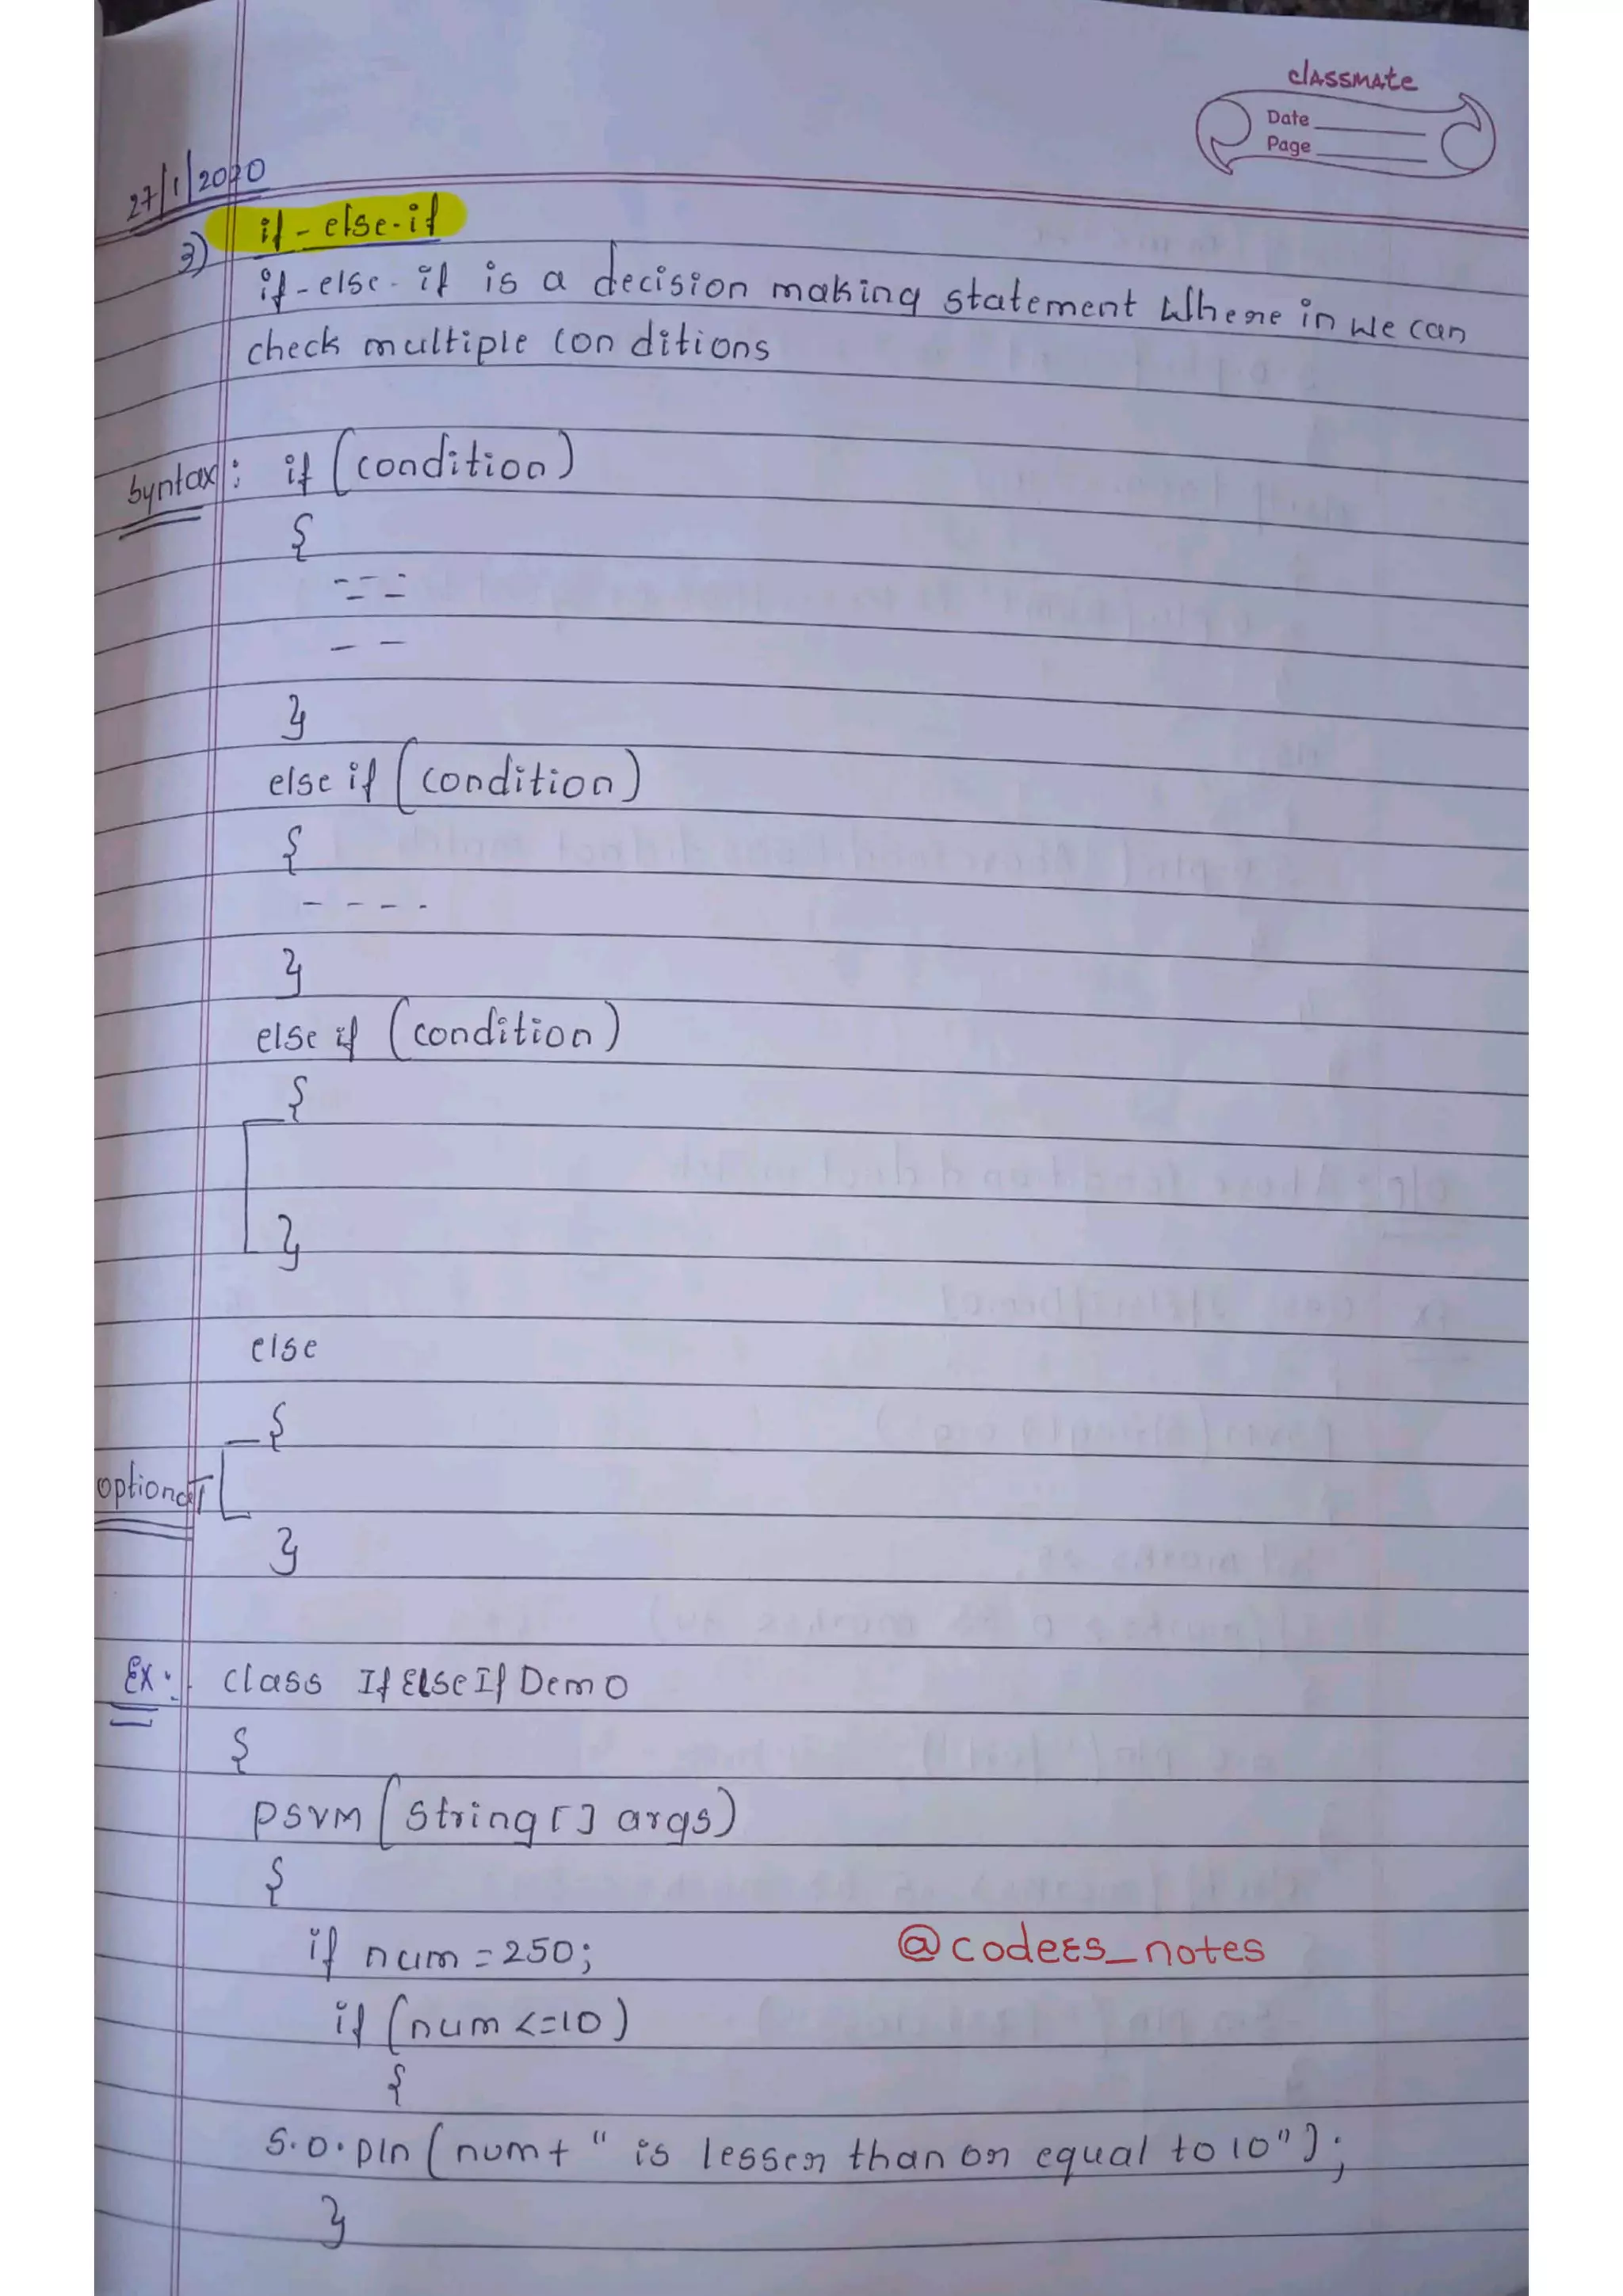 classmate
Date
Page
27/1/2020
3) if-else-if
if-else-if is a decision making statement Where in we can
check multiple conditions
Syntax: if (condition)
{
- - -
- -
- -
}
else if (condition)
{
- - - -
}
else if (condition)
{
}
else
{
optional
}
Ex: class IfElseIfDemo
{
psvm (String[] args)
{
if num = 250;
@codees_notes
if (num <=10)
{
S.o.pln (num+ " is lesser than or equal to 10");
}